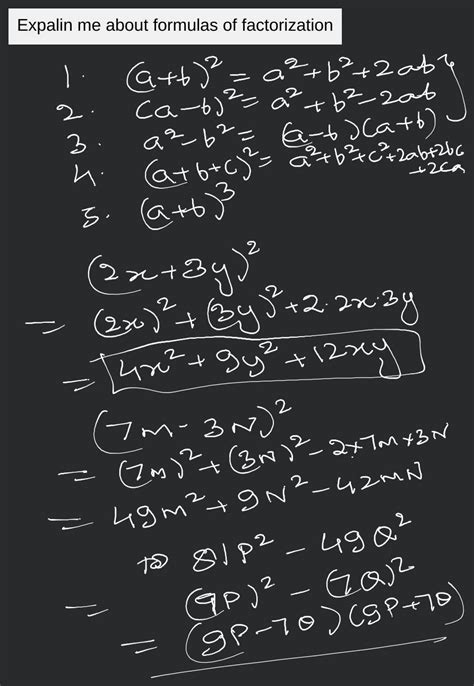 Expalin me about formulas of factorization
1. (a+b)² = a²+b²+2ab
2. (a-b)² = a²+b²-2ab
3. a²-b² = (a-b)(a+b)
4. (a+b+c)² = a²+b²+c²+2ab+2bc
+2ca
5. (a+b)³
(2x+3y)²
= (2x)²+(3y)²+2.2x.3y
= 4x²+9y²+12xy
(7M-3N)²
= (7M)²+(3N)²-2×7M×3N
= 49M²+9N²-42MN
81P²-49Q²
= (9P)²-(7Q)²
= (9P-7Q)(9P+7Q)